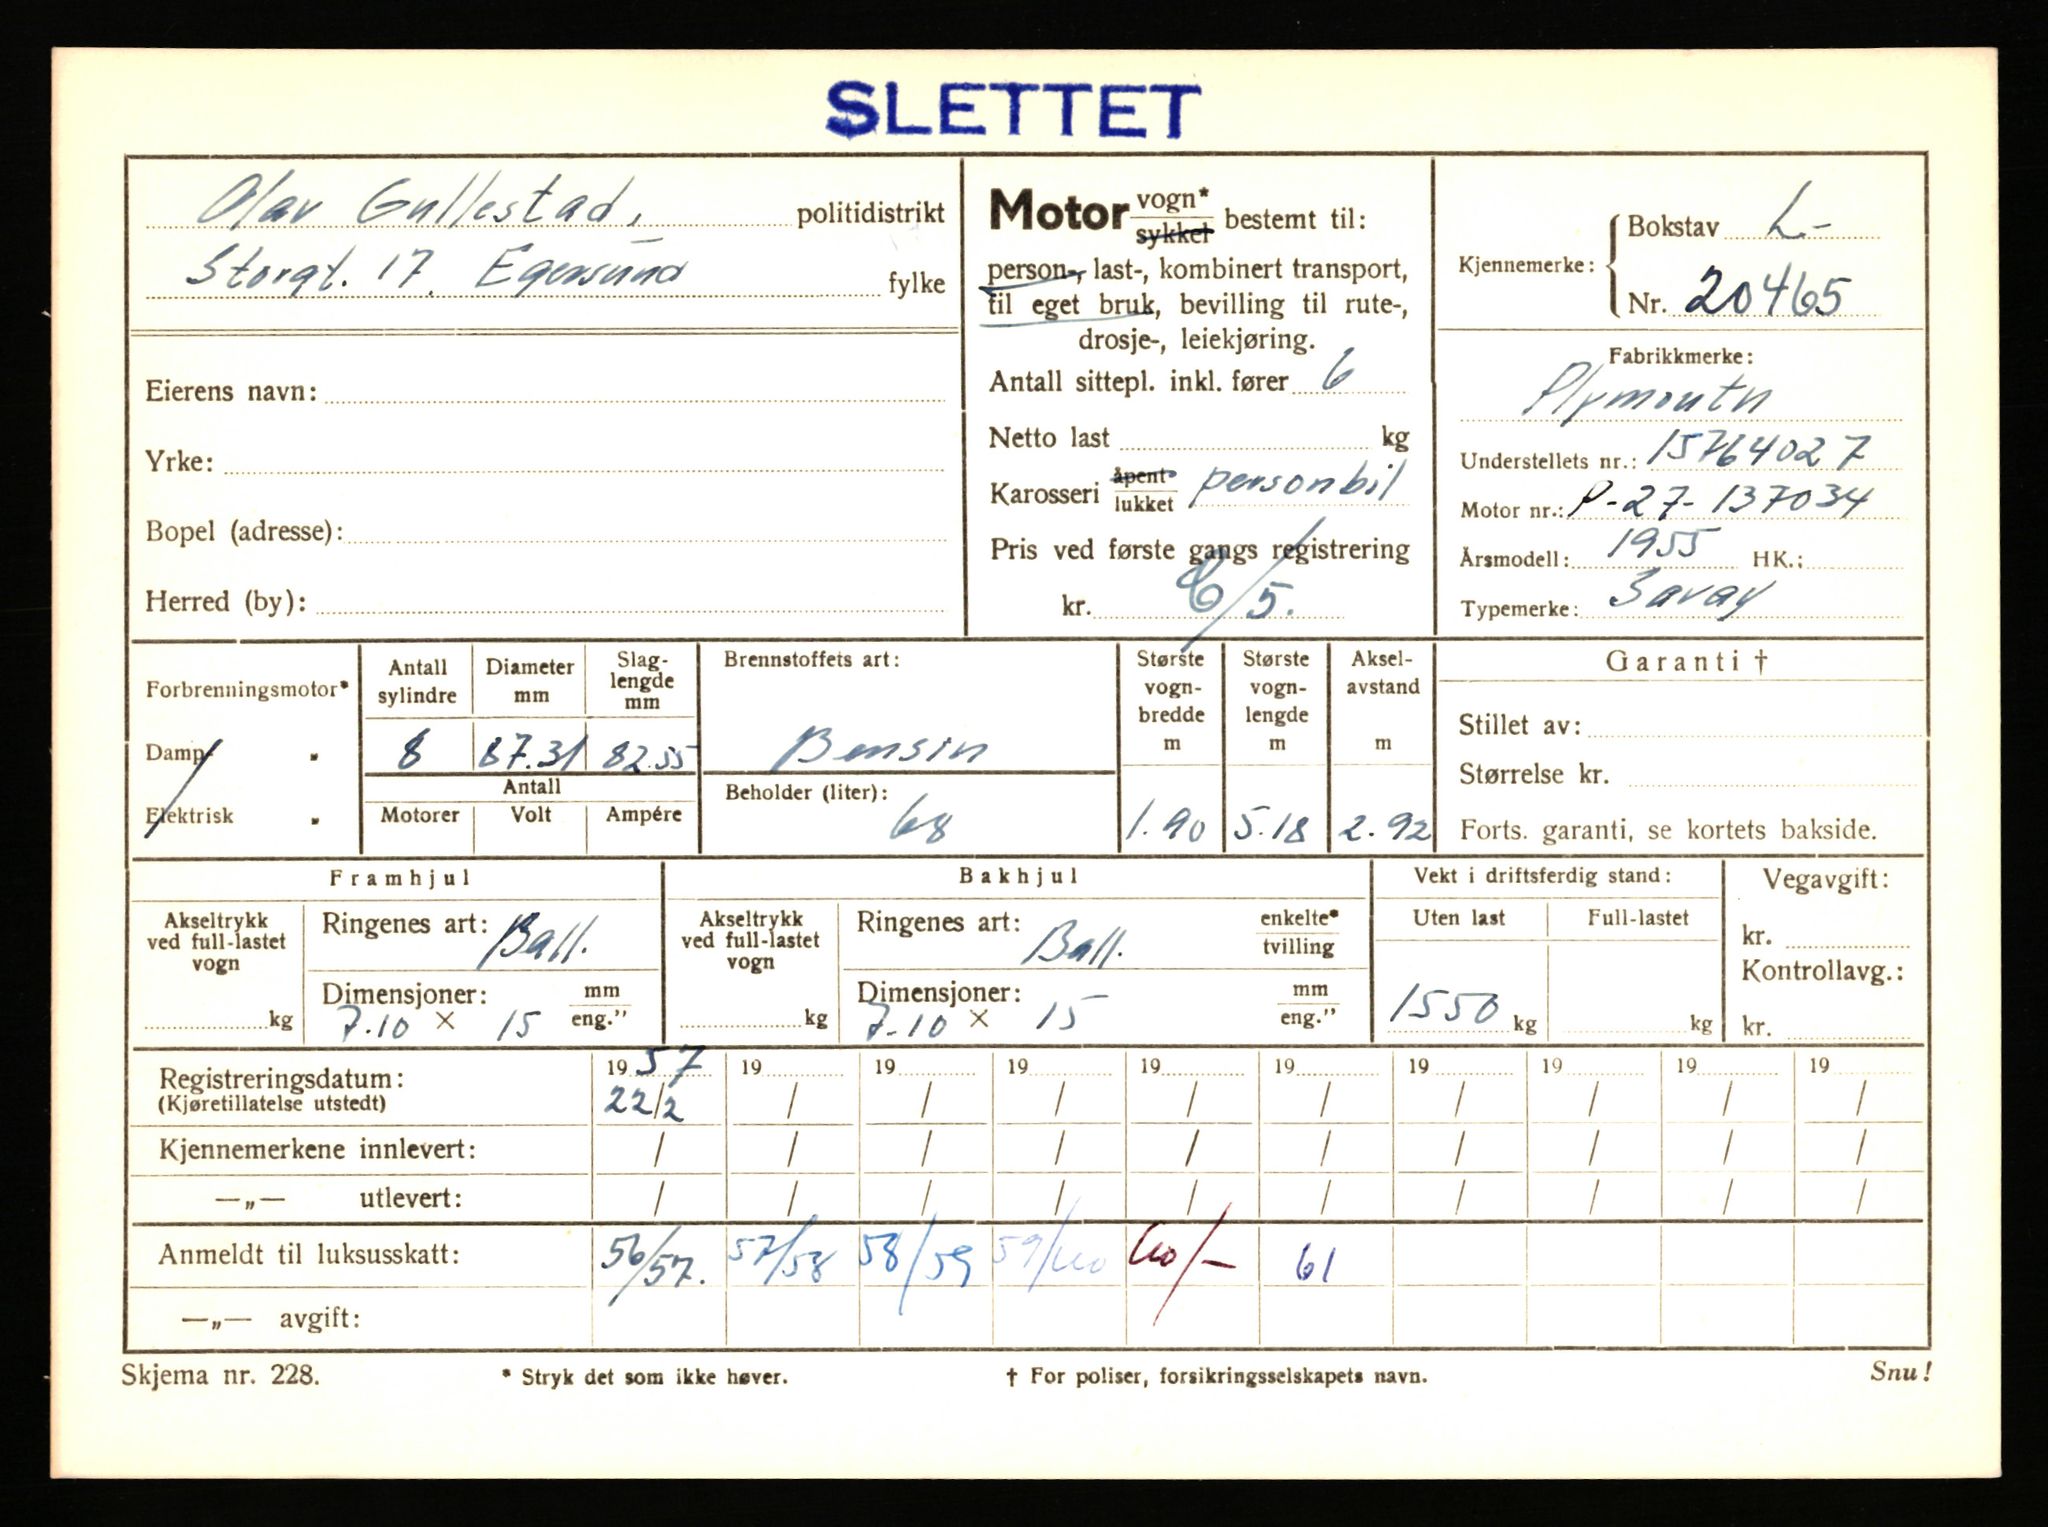 SLETTET
Olav Gullestad, politidistrikt
Storgt. 17. Egersund fylke
Eierens navn:
Yrke:
Bopel (adresse):
Herred (by):
Motor vogn* sykkel bestemt til:
person-, last-, kombinert transport,
til eget bruk, bevilling til rute-,
drosje-, leiekjøring.
Antall sittepl. inkl. fører 6
Netto last kg
Karosseri åpent lukket personbil
Pris ved første gangs registrering
kr. /5.
Kjennemerke: Bokstav L-
Nr. 20465
Fabrikkmerke:
Plymouth
Understellets nr.: 15764027
Motor nr.: P-27-137034
Årsmodell: 1955 HK.:
Typemerke: Savay
Forbrenningsmotor*
Damp- "
Elektrisk "
Antall sylindre Diameter mm Slag-lengde mm
8 87.31 82.55
Antall
Motorer Volt Ampére
Brennstoffets art:
Bensin
Beholder (liter):
68
Største vogn-bredde m Største vogn-lengde m Aksel-avstand m
1.90 5.18 2.92
Garanti †
Stillet av:
Størrelse kr.
Forts. garanti, se kortets bakside.
Framhjul
Akseltrykk
ved full-lastet
vogn
kg
Ringenes art: Ball.
Dimensjoner: mm
7.10 × 15 eng."
Bakhjul
Akseltrykk
ved full-lastet
vogn
kg
Ringenes art: Ball. enkelte* tvilling
Dimensjoner: mm
7.10 × 15 eng."
Vekt i driftsferdig stand:
Uten last Full-lastet
1550 kg kg
Vegavgift:
kr.
Kontrollavg.:
kr.
Registreringsdatum: 1957 19 19 19 19 19 19 19 19 19
(Kjøretillatelse utstedt) 22/2 / / / / / / / / /
Kjennemerkene innlevert: / / / / / / / / / /
—„— utlevert: / / / / / / / / / /
Anmeldt til luksusskatt: 56/57. 57/58 58/59 59/60 60/- 61
—„— avgift:
Skjema nr. 228. * Stryk det som ikke høver. † For poliser, forsikringsselskapets navn. Snu!